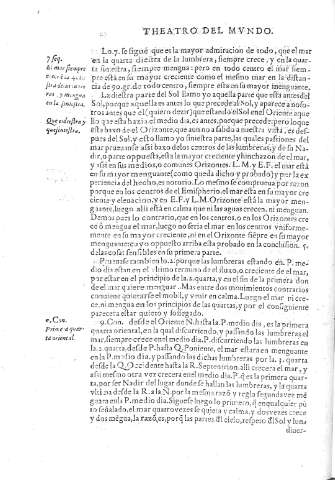 THEATRO DEL MVNDO.
Lo. 7. se sigue que es la mayor admiracion de todo, que el mar
en la quarta diestra de la lumbrera, siempre crece, y en la quar-
ta siniestra, siempre mengua: pero en todo centro el mar siem-
pre està en su mayor creciente como el mesmo mar en la distan-
cia de 90. gr. de todo centro, siempre està en su mayor
La diestra parte del Sol llamo yo aquella parte que està antes del
Sol, porque aquella es antes lo que precede al Sol, y aparece a noso-
tros antes que el (quiero dezir) que estando el Sol en el Oriente aque
llo que està hazia el medio dia, es antes, porque precede: pero lo que
està baxo de el Orizonte, que aun no a salido a nuestra vista, es des-
pues del Sol, y esto llamo yo siniestra parte, las quales passiones del
mar prueuanse assi baxo de los centros de las lumbreras, y de su Na-
dir, o parte opposita, està la mayor creciente y hinchazon de el mar,
y assi en sus medios, o comunes Orizontes. L. M. y E. F. el mar està
en su mayor menguante (como queda dicho y probado) y por la ex
periencia del hecho, es notorio. Lo mesmo se comprueua por razon
porque en los centros de el Emispherio, el mar està en su mayor cre
ciente y eleuacion, y en E. F. y L. M. Orizonte està la mayor men-
guante, luego alli està en calma que ni las aguas crecen, ni menguan.
Demas para lo contrario, que en los centros, o en los Orizontes cre
ce ò mengua el mar, luego no seria el mar en los centros vniforme-
mente en su mayor creciente, ni en el Orizonte siẽpre en su mayor
menguante, cuyo opposito arriba està probado en la conclusion. 5.
de las cosas sensibles en su primera parte.
Prueuanse tambien lo. 2. porque las lumbreras estando en. P. me-
dio dia estan en el vltimo termino de el fluxo, o creciente de el mar,
por estar en el principio de la. 2. quarta, y en el fin de la primera don
de el mar quiere menguar. Mas entre dos mouimientos contrarios
conuiene quietarse el mobil, y venir en calma. Luego el mar ni cre-
ce, ni mengua en los principios de las quartas, y por el consiguiente
parecera estar quieto y sossegado.
9. Con. desde el Oriente N. hasta la. P. medio dia, es la primera
quarta oriental, en la qual discurriendo, y passando las lumbreras el
mar, siempre crece en el medio dia. P. discurriendo las lumbreras en
la. 2. quarta desde P. hasta Q. Poniente, el mar estara en menguante
en la P. medio dia, y passando las dichas lumbreras por la. 3. quarta
desde la Q. Occidente hasta la R. Septentrion, alli crecera el mar, y
assi mesmo otra vez crecera en el medio dia. P. q̃ es la primera quar-
ta, por ser Nadir del lugar donde se hallan las lumbreras, y la quarta
vltima desde la R. a la Ñ. por la mesma razõ y regla segunda vez mẽ
guara en la P. medio dia. Siguese luego lo primero, q̃ en qualquier pũ
to señalado, el mar quatro vezes se quieta y calma, y dos vezes crece
y dos mẽgua, la razõ es, porq̃ las partes del cielo, respeto ðl Sol y luna
diuer-
7 seq.
El mar siempre
crece en la
diestra
y mengua
en la siniestra.
Que es diestra y
que siniestra.
9. Con.
Prime a quar-
ta oriental.